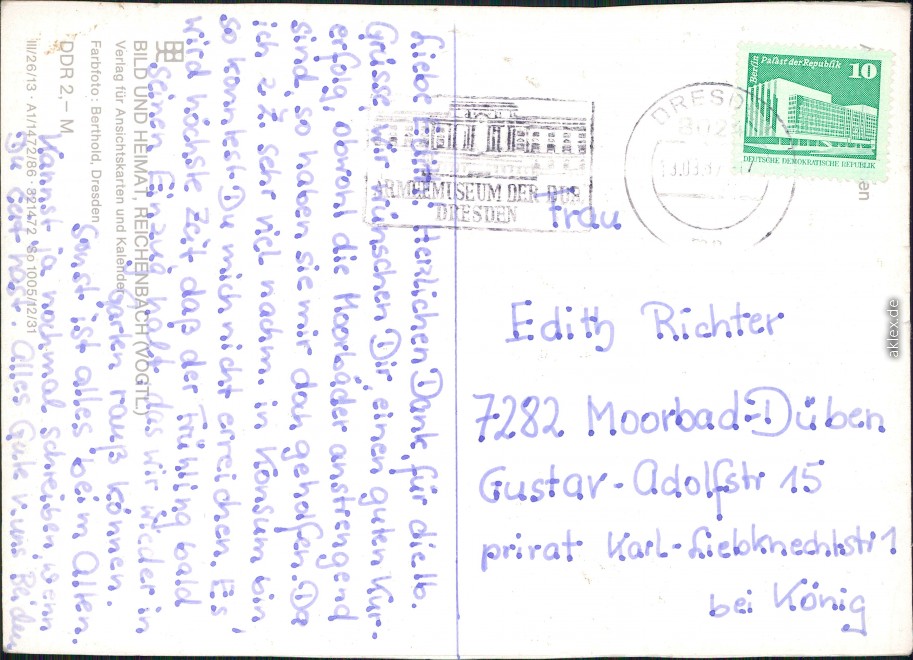 Liebe Edith, Herzlichen Dank für die lb.
Grüsse, wir wünschen Dir einen guten Kur-
erfolg, obwohl die Moorbäder anstrengend
sind, so haben sie mir doch geholfen. Da
ich z.Z. mehr viel nachm. in Konsum bin,
so konntest Du mich nicht erreichen. Es
wird höchste Zeit daß der Frühling bald
seinen Einzug hält, das wir wieder in
Garten rauß können.
Sonst ist alles beim Alten.
Kannst ja nochmal schreiben, wenn
Du Zeit hast. Alles Gute v. uns Beiden
BILD UND HEIMAT, REICHENBACH (VOGTL.)
Verlag für Ansichtskarten und Kalender
Farbfoto: Berthold, Dresden
DDR 2,– M
III/26/13 · A1/1472/86 · 821472 So 1005/12/31
ARMEEMUSEUM DER DDR
DRESDEN
DRESDEN
Berlin
Palast der Republik
10
DEUTSCHE DEMOKRATISCHE REPUBLIK
Frau
Edith Richter
7282 Moorbad-Düben
Gustav-Adolfstr 15
privat Karl-Liebknechtstr 1
bei König
aklex.de